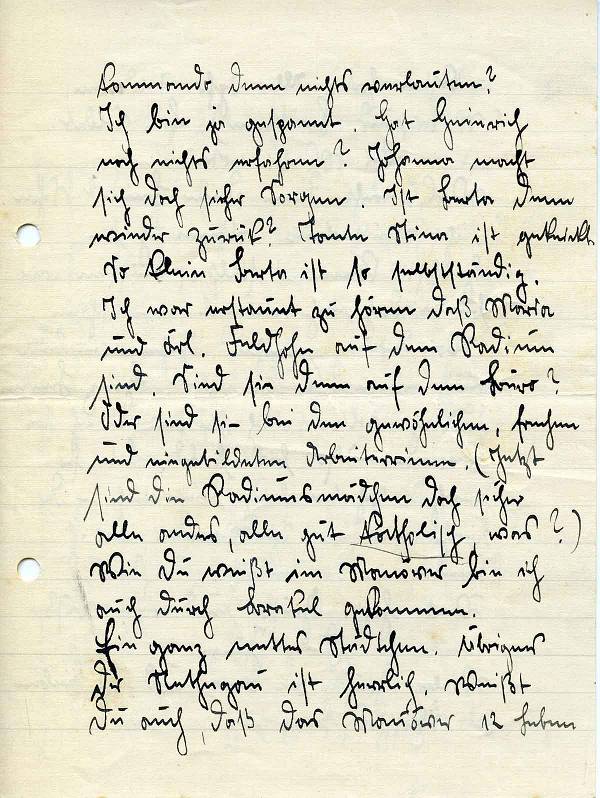 Kommando denn nichts verlauten?
Ich bin ja gespannt. Hat Heinrich
noch nichts erfahren? Johanna macht
sich doch sicher Sorgen. Ist Herta denn
wieder zurück? Tante Stina ist geknickt.
So klein Herta ist so selbstständig.
Ich war erstaunt zu hören daß Maria
und Feldhohn auf dem Radium
sind. Sind sie denn auf dem Büro?
Oder sind sie bei den gewöhnlichen, frechen
und eingebildeten Arbeiterinnen. (Jetzt
sind die Radiumsmädchen doch sicher
alle anders, alle gut katholisch, was?)
Wie Du weißt im Manöver bin ich
auch durch gekommen.
Ein ganz nettes Städtchen. Übrigens
der Netzegau ist herrlich. Weißt
Du auch, daß das Manöver 12 haben